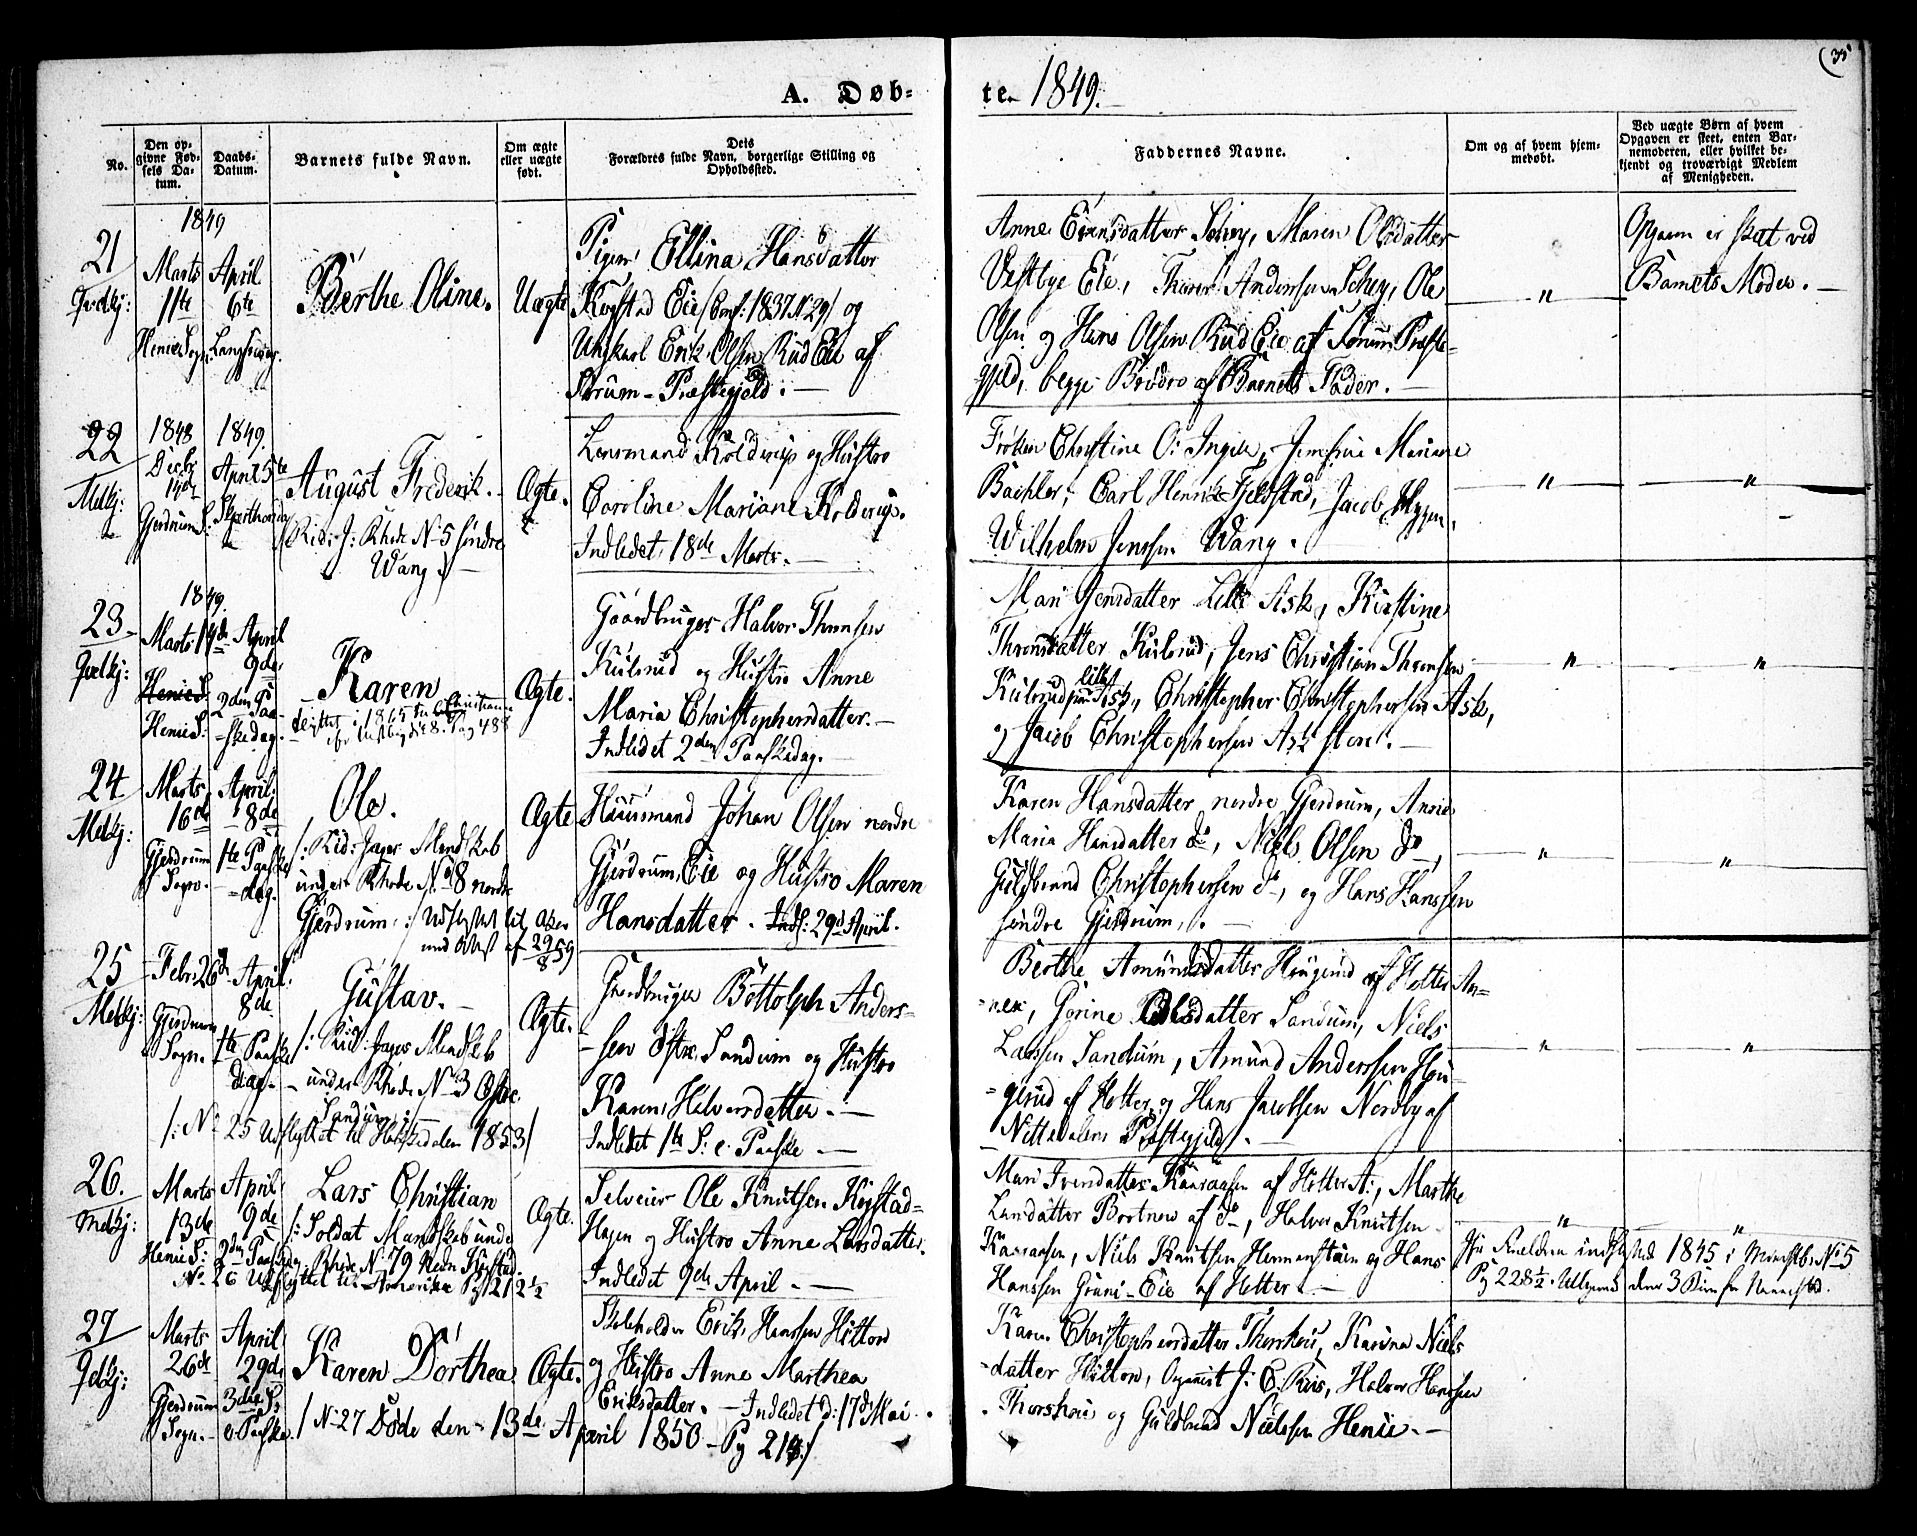 A. Døb-
te 1849.
(35
No.
Den op-
givne Fød-
sels Da-
tum.
Daabs-
Datum.
Barnets fulde Navn.
Om ægte
eller uægte
født.
Dets
Forældres fulde Navn, borgerlige Stilling og
Opholdssted.
Faddernes Navne.
Om og af hvem hjem-
medøbt.
Ved uægte Børn af hvem
Opgaven er skeet, enten Bar-
nemoderen, eller hvilket be-
kjendt og troværdigt Medlem
af Menigheden.
21
1849
Marts
11te
Henie Sogn.
April
6te
Berthe Oline.
Uægte
Pigen Ellina Hansdatter
Kogstad Eie (Conf: 1837 N 29) og
Ungkarl Erik Olsen Rud Eie af
Sørum-Præstegjeld.
Anne Evensdatter Schøy, Maren Olsdatter
Vestbye Eie, Andersen Schøy, Ole
Olsen og Hans Olsen Rud Eie af Sørum Præste-
gjeld, begge Brødre af Barnets Fader.
"
Opgaven er skeet ved
Barnets Moder.
22
1848
Decbr
Gjerdrum S:
1849.
April 5te
Skjærthorsdag
August Frederik.
Rid: J: Rhode N 5 søndre
Wang.
Ægte.
Lensmand Kolderup og Hustro
Caroline Mariane Kolderup.
Indledet 18de Marts.
Frøken Christine O: Jngier, Jomfrue Mariane
Bachler, Carl Henrik Fjeldstad, Jacob Hygen,
Wilhelm Jenssen Wang.
"
"
23
1849.
Marts 14de
Henie S.
Henie S:
April
9de
2den Paa-
skedag.
Karen
1865
Pag 488
Ægte.
Gaardbruger Halvor Thronsen
Kulsrud og Hustro Anne
Maria Christophersdatter.
Indledet 2den Paaskedag.
Mari Jensdatter Lille Ask, Kirstine
Thronsdatter Kulsrud, Jens Christian Thronsen
Kulsrud lille Ask, Christopher Christophersen Ask,
og Jacob Christophersen Ask store.
"
"
24
Melkj:
Marts
16de
Gjerdrum
Sogn.
April:
8de
1te Paaske
dag.
Ole.
/: Rid: Jager Mandskab
under Rhode No 8 nordre
Gjerdrum :/ Udflyttet til Aker
med Attest af 29/8 59
Ægte
Huusmand Johan Olsen nordre
Gjerdrum Eie og Hustro Maren
Hansdatter. Indl: 29de April.
Karen Hansdatter nordre Gjerdrum, Anne
Maria Hansdatter do, Niels Olsen do,
Guldbrand Christophersen do, og Hans Hanssen
søndre Gjerdrum.
"
"
25
Melkj:
Febr: 26de
Gjerdrum
Sogn.
April:
8de
1te Paaske
dag.
Gustav.
/: Rid: Jager Mandskab
under Rhode No 3 Østre
Sandum :/
/: No 25 Udflyttet til Hakkedalen 1853 /
Ægte.
Gaardbruger Bottolph Anders-
sen østre Sandum og Hustro
Karen Halvorsdatter.
Indledet 1te S: e: Paaske
Berthe Amundsdatter Haugerud af Hetter An-
nex, Gorine Olsdatter Sandum, Niels
Larssen Sandum, Amund Anderssen Hau-
gerud af Hetter og Hans Jacobsen Nordby af
Nittedalens Præstegjeld.
"
"
26.
Marts
13de
Henie S:
April
9de
2den Paaskedag
Lars Christian
/: Soldat Mandskab under
Rhode No 79 Nedre Kogstad.
No 26 Udflyttet til Amerika Pg 212½
Ægte.
Selveier Ole Knutsen Kogstad-
Hagen og Hustro Anne Larsdatter.
Indledet 9de April.
Mari Iversdatter Kaaraasen af Hetter A:, Marthe
Larsdatter Bortnen af do, Halvor Knutsen
Kaaraasen, Niels Knutsen Hemmenstuen og Hans
Hanssen Gruni-Eie af Hetter.
"
"
1845 i Ministb: No 5
Pg 228½.
27
Marts
26de
Gjerdrum
Sogn.
April
29de
3die S:
e: Paaske.
Karen Dorthea
/ No 27 Døde den 13de April 1850 - Pg 214 /
Ægte.
Skoleholder Erik Hanssen Hilton
og Hustro Anne Marthea
Eriksdatter. Indledet d: 17de Mai.
Karen Christophersdatter Thorshoug, Karina Niels-
datter Hilton, Organist J: C. Riis, Halvor Hanssen
Thorshoug og Guldbrand Nielssen Henie.